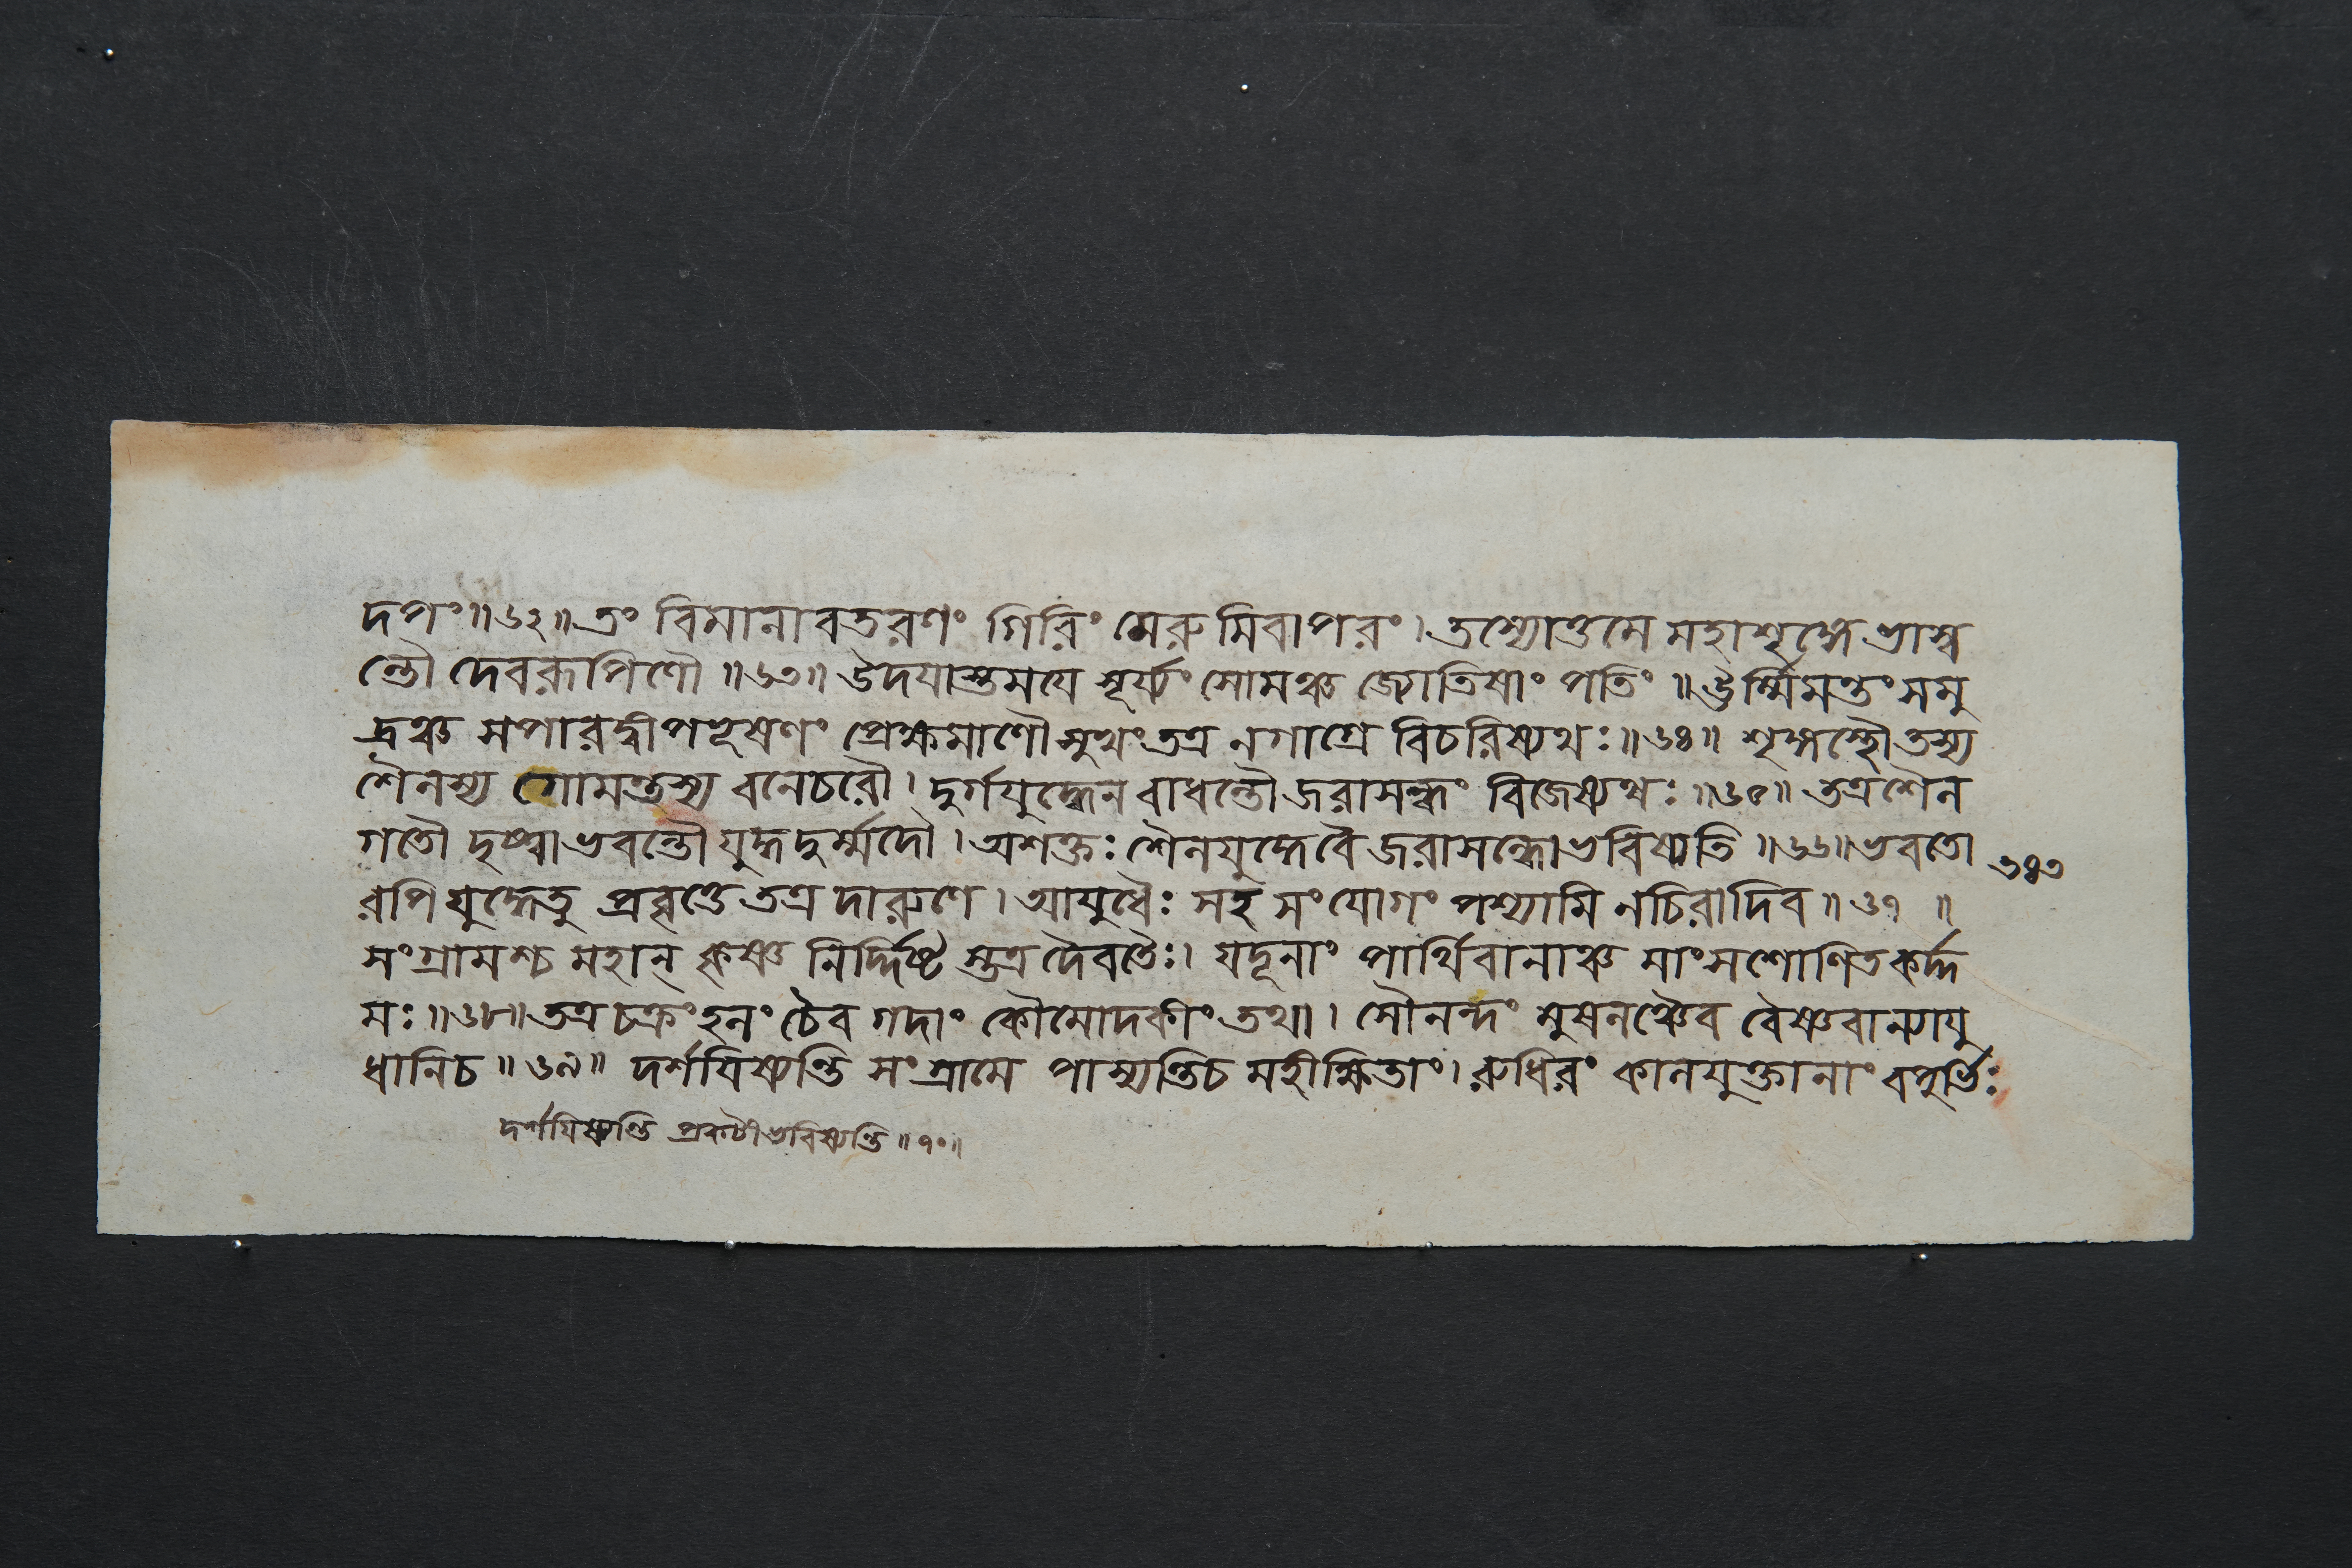 দপং॥৬২॥তং বিমানাবতরণং গিরিং মেরুমিবাপরং। তস্যোত্তমে মহাশৃঙ্গে ভাস্ব
ন্তৌ দেবরূপিণৌ ॥৬৩॥ উদয়াস্তময়ে সূর্য্যং সোমঞ্চ জ্যোতিষাং পতিং ॥ ঊর্ম্মিমন্তং সমু
দ্রঞ্চ সপারদ্বীপভূষণং প্রেক্ষমাণৌ সুখং তত্র নগাগ্রে বিচরিষ্যথঃ॥৬৪॥ শৃঙ্গস্থৌ তস্য
শৈলস্য গোমন্তস্য বনেচরৌ। দুর্গযুদ্ধেন বাধন্তৌ জরাসন্ধং বিজেষ্যথঃ॥৬৫॥ তত্র শৈল
গতৌ দৃষ্ট্বা ভবন্তৌ যুদ্ধদুর্ম্মদৌ। অশক্তঃ শৈলযুদ্ধে বৈ জরাসন্ধো ভবিষ্যতি ॥৬৬॥ ভবতো
রপি যুদ্ধেতু প্রবৃত্তে তত্র দারুণে। আয়ুধৈঃ সহ সংযোগং পশ্যামি নচিরাদিব॥ ৬৭ ॥
সংগ্রামশ্চ মহান্ কৃষ্ণ নির্দ্দিষ্ট স্তত্র দৈবতৈঃ। যদূনাং পার্থিবানাঞ্চ মাংসশোণিতকর্দ্দ
মঃ॥৬৮॥ তত্র চক্রং হলং চৈব গদাং কৌমোদকীং তথা। সৌনন্দং মুষলঞ্চৈব বৈষ্ণবান্যায়ু
ধানিচ॥ ৬৯॥ দর্শয়িষ্যন্তি সংগ্রামে পাস্যন্তিচ মহীক্ষিতাং। রুধিরং কালযুক্তানাং বপুর্ভিঃ
৩৪৩
দর্শয়িষ্যন্তি প্রকটীভবিষ্যন্তি ॥৭০॥